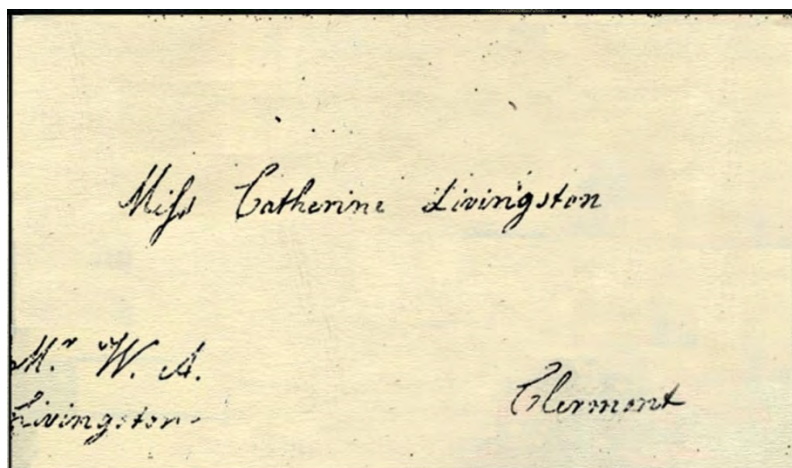 Miſs Catherine Livingston
Mr. W. A.
Livingston
Clermont